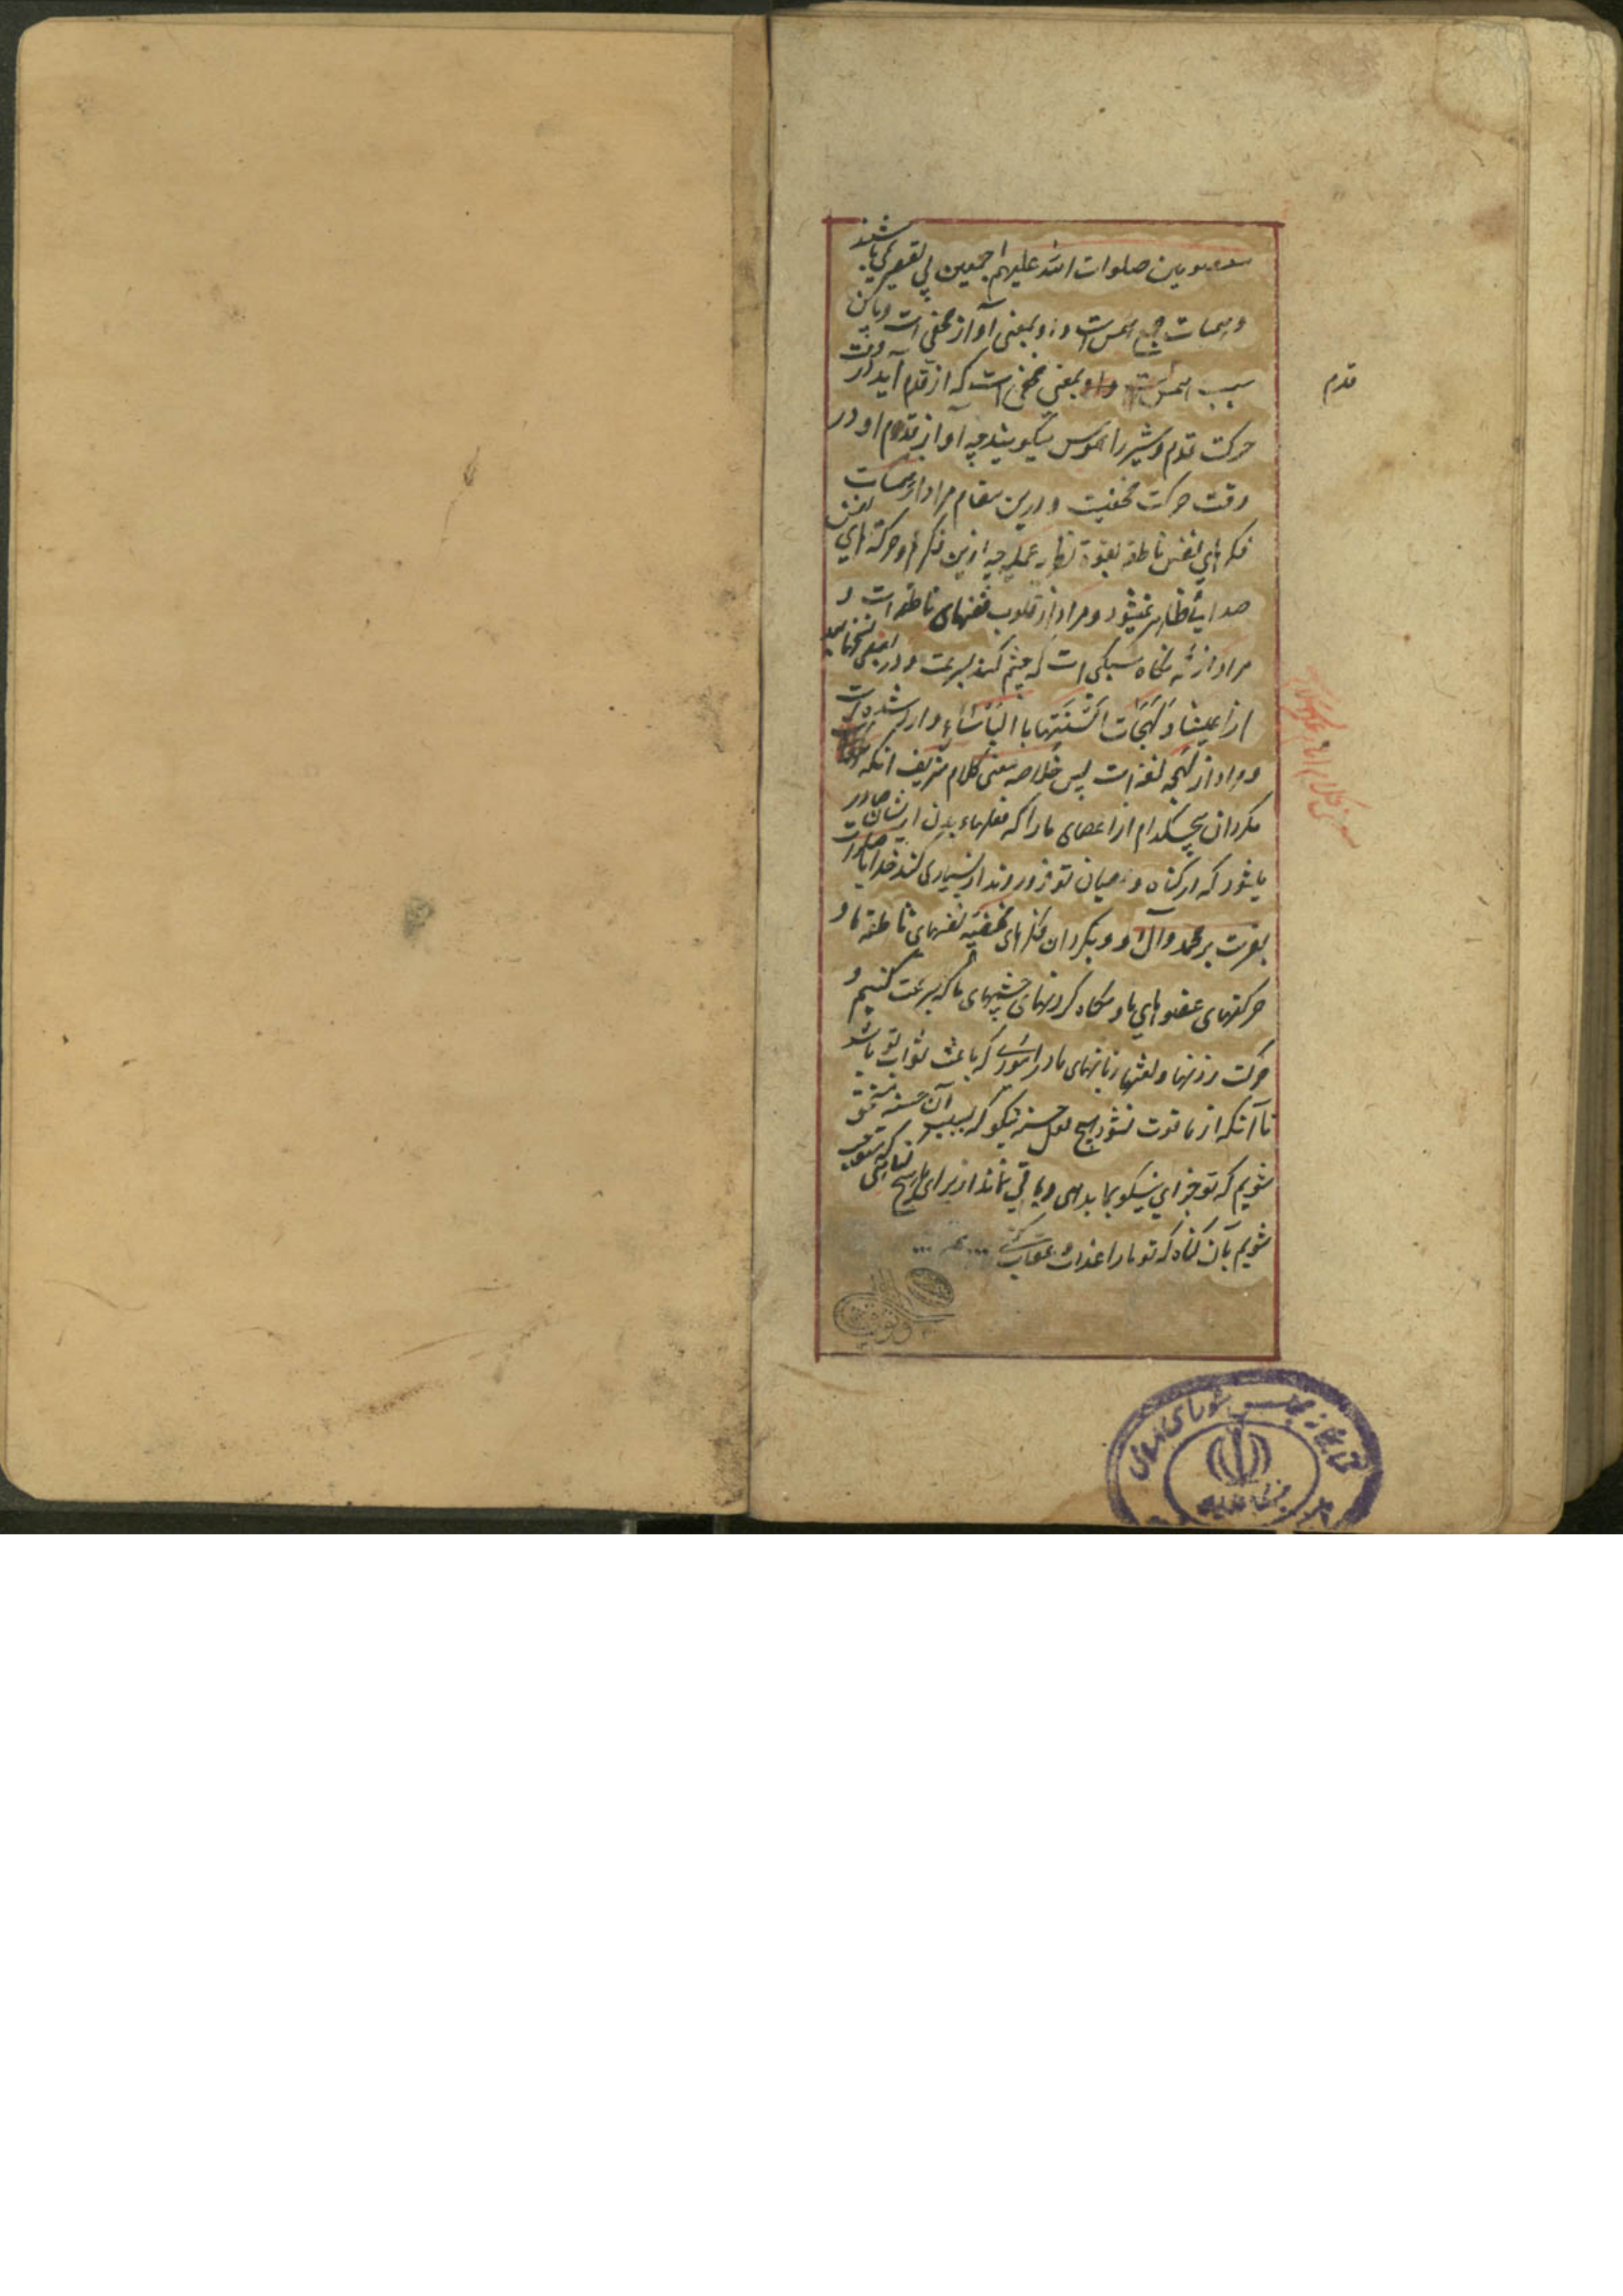 معصومین صلوات الله علیهم اجمعین بی تقصیر می‌باشند
و همسات جمع همس است و او بمعنی آواز مخفی است و باین
سبب همس است و او بمعنی مخفی است که از قدم آید در وقت
قدم
حرکت قدم و شیر را هموس میگویند چه آواز قدوم او در
وقت حرکت مخفیست و درین مقام مراد از همسات
فکرهای نفس ناطقه بقوة نظریه عملیه چه ازین فکرها و حرکتهای نفس
صدایی ظاهر نمیشود و مراد از قلوب نفسهای ناطقه است و
مراد از نگاه سبکی است که چشم کند بسرعت و در بعضی نسخها
از اعیننا و لهجات السنتها با وارد شده است
و مراد از لهجه لغة است پس خلاصه معنی کلام شریف آنکه
مگردان هیچکدام از اعضای ما را که فعلهاء بدن ازیشان صادر
میشود که از گناه و عصیان تو فرو روند از بسیاری گناه خدایا صلوات
بفرست بر محمد و آل او و بگردان فکرهای مخفیه نفسهای ناطقه ما و
حرکتهای عضوهای ما و نگاه کردنهای چشمهای ما که بسرعت کنیم و
حرکت زدنها و لغتها زبانهای ما در اموری که باعث ثواب تو باشد
تا آنکه از ما فوت نشود هیچ فعل حسنه نیکو که بسبب آن حسنه مستحق
شویم که تو جزای نیکو بما بدهی و باقی نماند از برای ما هیچ گناهی که مستوجب
شویم بآن گناه که تو ما را عذاب و عقاب کنی
کتابخانه مجلس شورای اسلامی